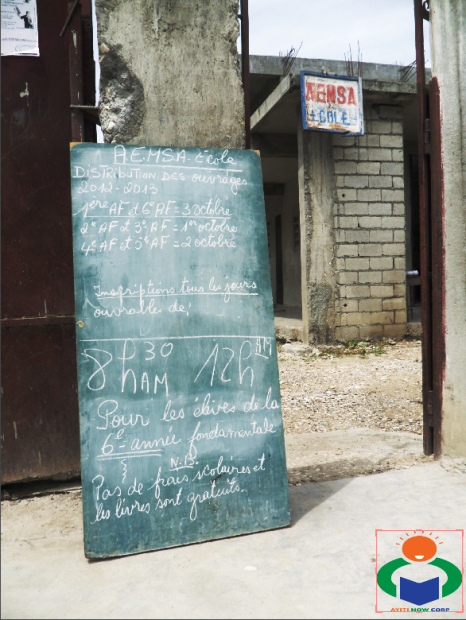 AEMSA
ECOLE
AEMSA-École
DISTRIBUTION DES ouvrages
2012-2013
1ère AF et 6e AF = 3 octobre
2e AF et 3e AF = 1er octobre
4e AF et 5e AF = 2 octobre
Inscriptions tous les jours
ouvrables de:
8h30 AM 12h AM
Pour les élèves de la
6e année fondamentale
N.B
Pas de frais scolaires et
les livres sont gratuits.
AYITI NOW CORP